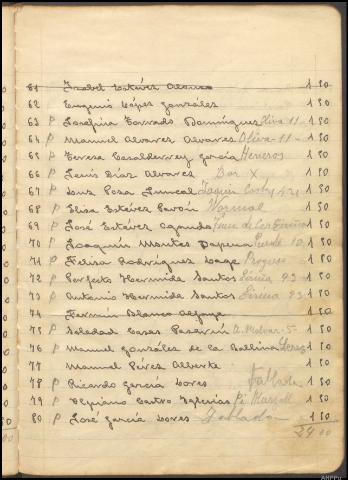 61 Isabel Estévez Alonso 1 50
62 Eugenio López González 1 50
63 P Josefina Torrado Domínguez Oliva 11 1 50
64 P Manuel Alvarez Alvarez Oliva-11- 1 50
65 P Teresa Casalderrey García Herreros 1 50
66 P Luis Díaz Alvarez Dos X 1 50
67 P Luz Poza Juncal Joaquin Costa 1 50
68 P Elisa Estévez Pavón Normal 1 50
69 P José Estévez 1 50
70 P Joaquín Montes 10 1 50
71 P Felisa Rodríguez Lage Progreso 1 50
72 P Perfecto Hermida Santos Sirena 93 1 50
73 P Antonio Hermida Santos Sirena 93 1 50
74 Fermín Blanco 1 50
75 P Soledad Casas A. Malvar-5- 1 50
76 P Manuel González de la Ballina Lerez 1 50
77 Manuel Pérez Alberte 1 50
78 P Ricardo García Lores 1 50
79 P Cipriano Castro Iglesias Pi Margall 1 50
80 P José García Lores 1 50
24 00
ARPPo